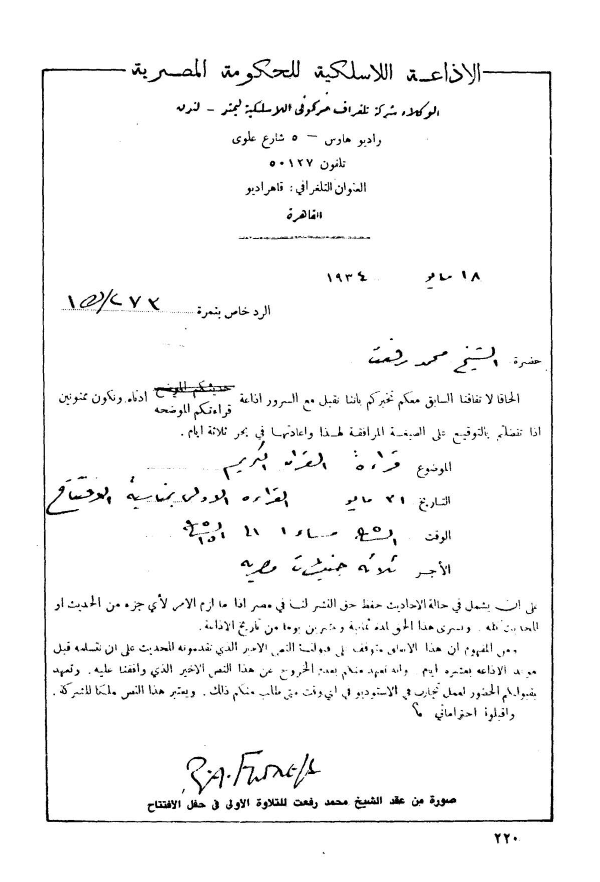 الاذاعة اللاسلكية للحكومة المصرية
الوكلاء شركة تلغراف مركونى اللاسلكية ليمتد - لندن
راديو هاوس - ٥ شارع علوى
تلفون ٥٠١٢٧
العنوان التلغرافي: قاهراديو
القاهرة
١٨ مايو ١٩٣٤
الرد خاص بنمرة
حضرة الشيخ محمد رفعت
الحاقا لاتفاقنا السابق معكم نخبركم باننا نقبل مع السرور اذاعة حديثكم الموضح قراءتكم الموضحه ادناه ونكون ممنونين
اذا تفضلتم بالتوقيع على الصيغة المرافقة لهذا واعادتها في بحر ثلاثة ايام .
الموضوع قراءة القران الكريم
التاريخ ٣١ مايو القراءه الاولى بمناسبة الافتتاح
الوقت الساعة مساء
الأجر ثلاثة جنيهات مصريه
على ان يشمل في حالة الاحاديث حفظ حق النشر لنا في مصر اذا ما لزم الامر لأي جزء من الحديث او
للحديث كله . ويسرى هذا الحق لمدة ثمانية وعشرين يوما من تاريخ الاذاعة .
ومن المفهوم ان هذا الاتفاق متوقف على قبولنا النص الاخير الذي تقدمونه للحديث على ان نتسلمه قبل
موعد الاذاعه بعشره ايام . وانه تعهد منكم بعدم الخروج عن هذا النص الاخير الذي وافقنا عليه . وتعهد
بقبولكم الحضور لعمل تجارب في الاستوديو في اي وقت متى طلب منكم ذلك . ويعتبر هذا النص ملكا للشركة .
واقبلوا احتراماتي
صورة من عقد الشيخ محمد رفعت للتلاوة الاولى فى حفل الافتتاح
٢٢٠